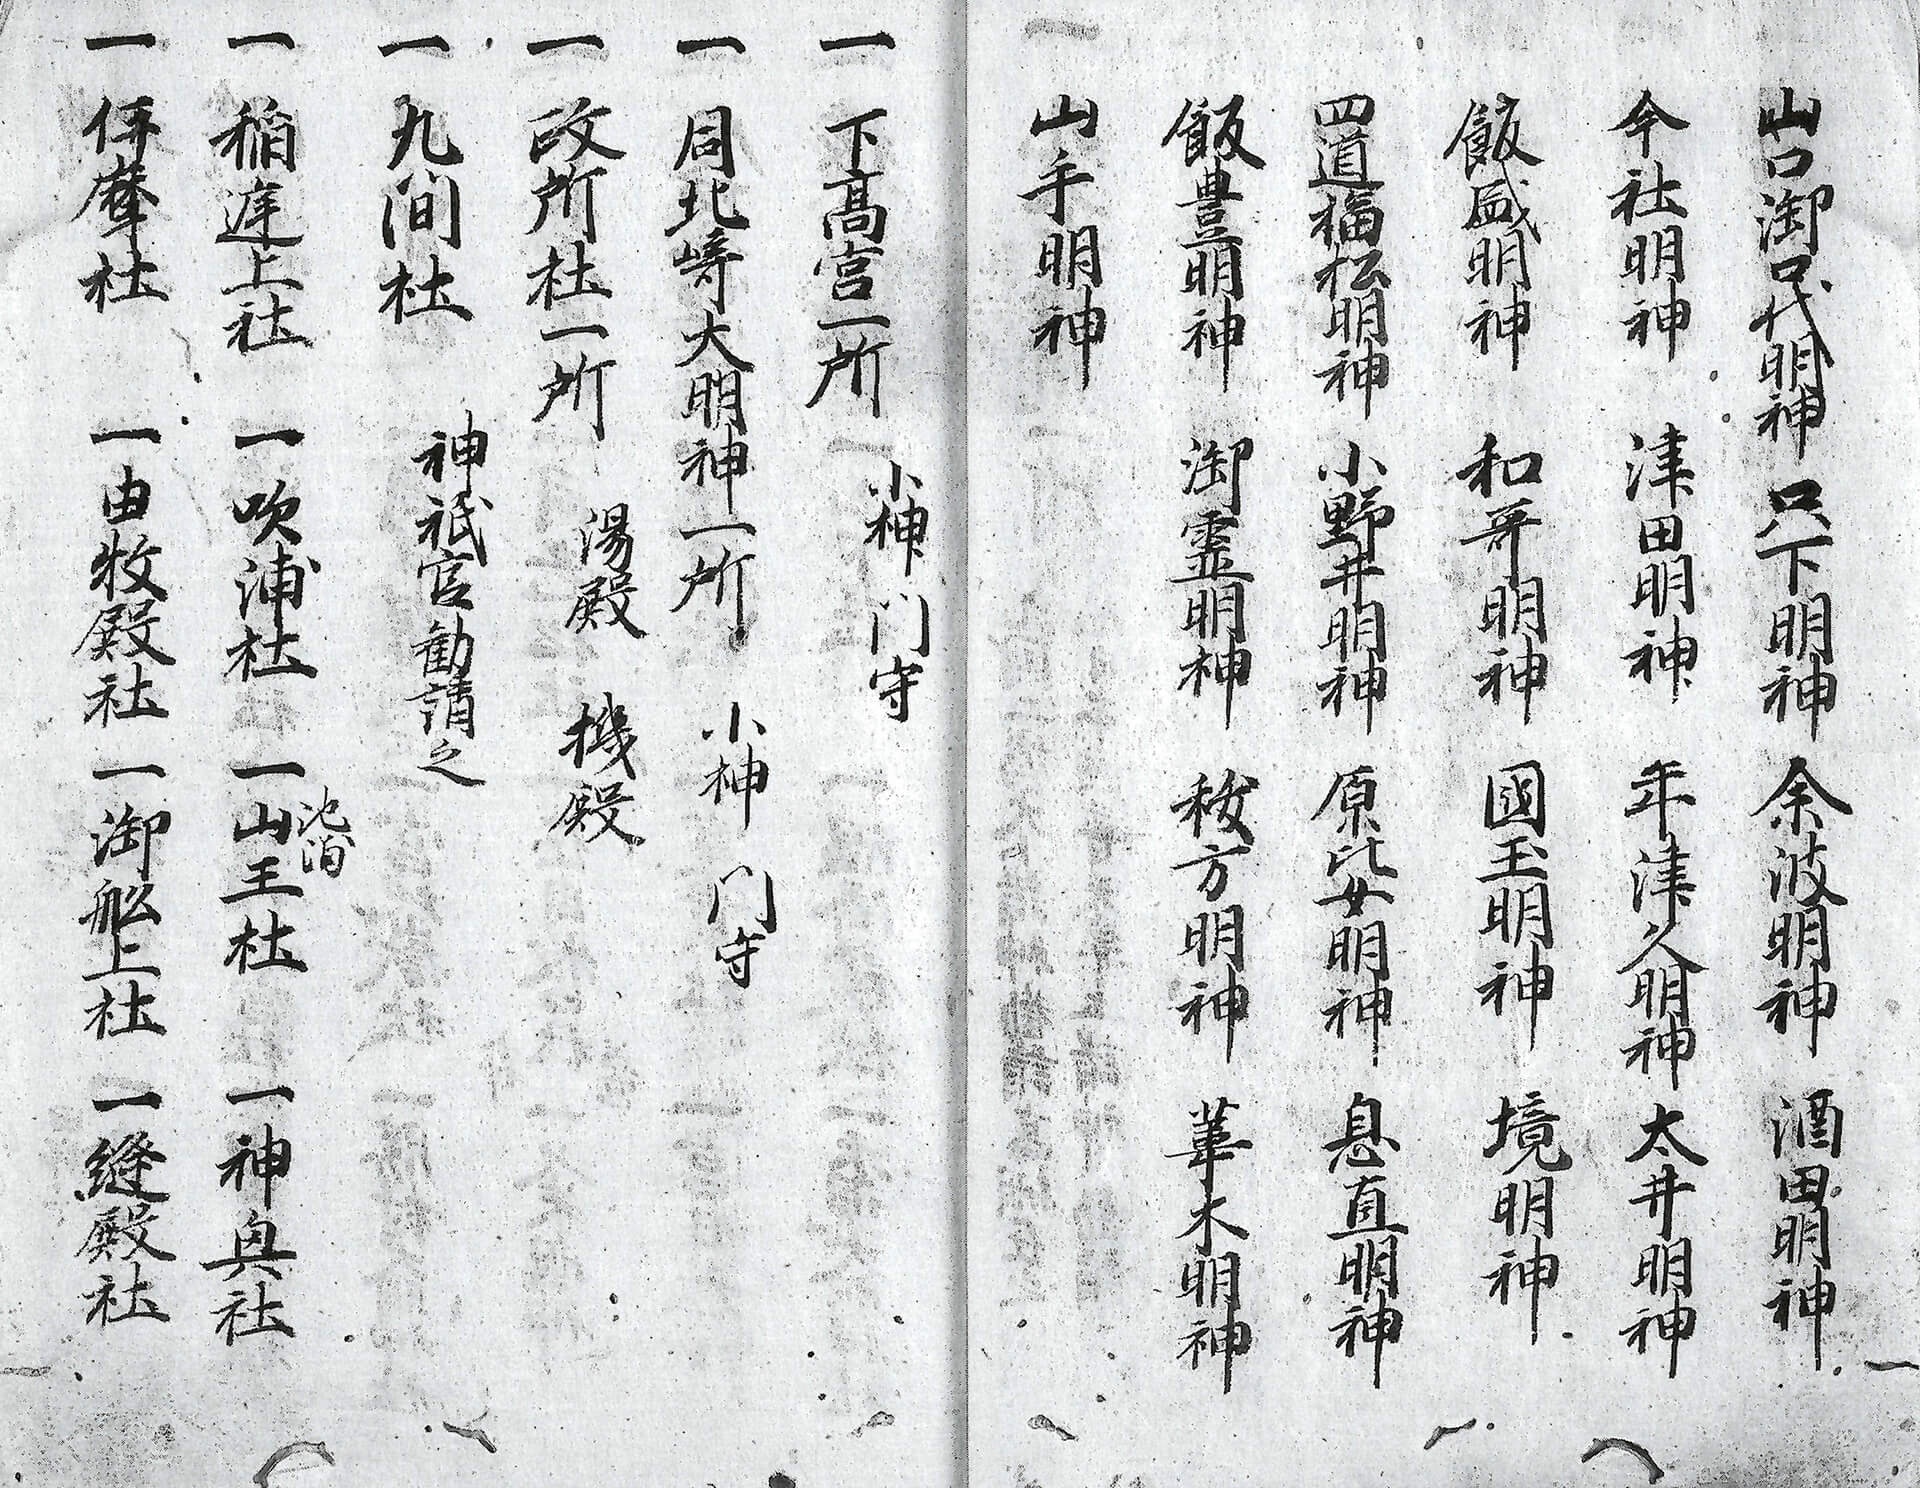 山口御口代明神 只下明神 余波明神 酒田明神
今社明神 津田明神 年津久明神 太井明神
飯盛明神 和哥明神 國玉明神 境明神
四道福松明神 小野井明神 原比女明神 息直明神
飯豊明神 御霊明神 秡方明神 華木明神
山手明神
一 下高宮一所 小神 门守
一 同北崎大明神一所 小神 门守
一 政所社一所 湯殿 機殿
一 九间社 神祇官勧請之
一 稲庭上社 一吹浦社 一山王社 一神輿社
一 伊聲社 一由牧殿社 一御船上社 一縫殿社